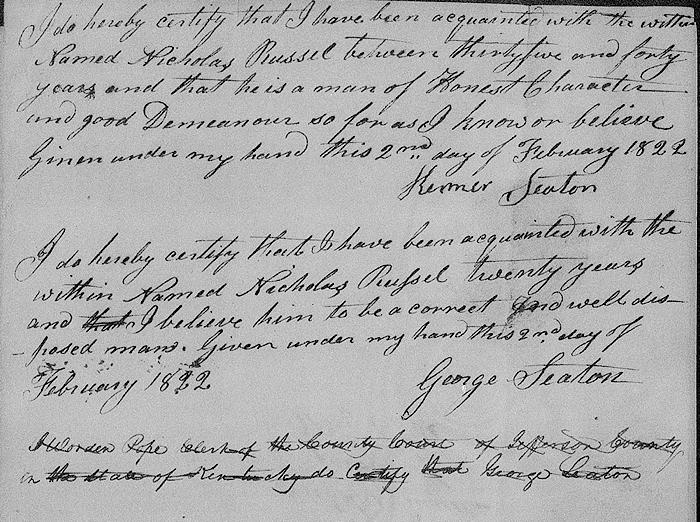 I do hereby certify that I have been acquainted with the within
Named Nicholas Russel between thirtyfive and forty
years and that he is a man of Honest Character
and good Demeanour so far as I know or believe
Given under my hand this 2nd. day of February 1822
Kenner Seaton
I do hereby certify that I have been acquainted with the
within Named Nicholas Russel twenty years
and that I believe him to be a correct and well dis-
-posed man. Given under my hand this 2nd. day of
February 1822
George Seaton
I Worden Pope Clerk of the County Court of Jefferson County
in the state of Kentucky do Certify that George Seaton